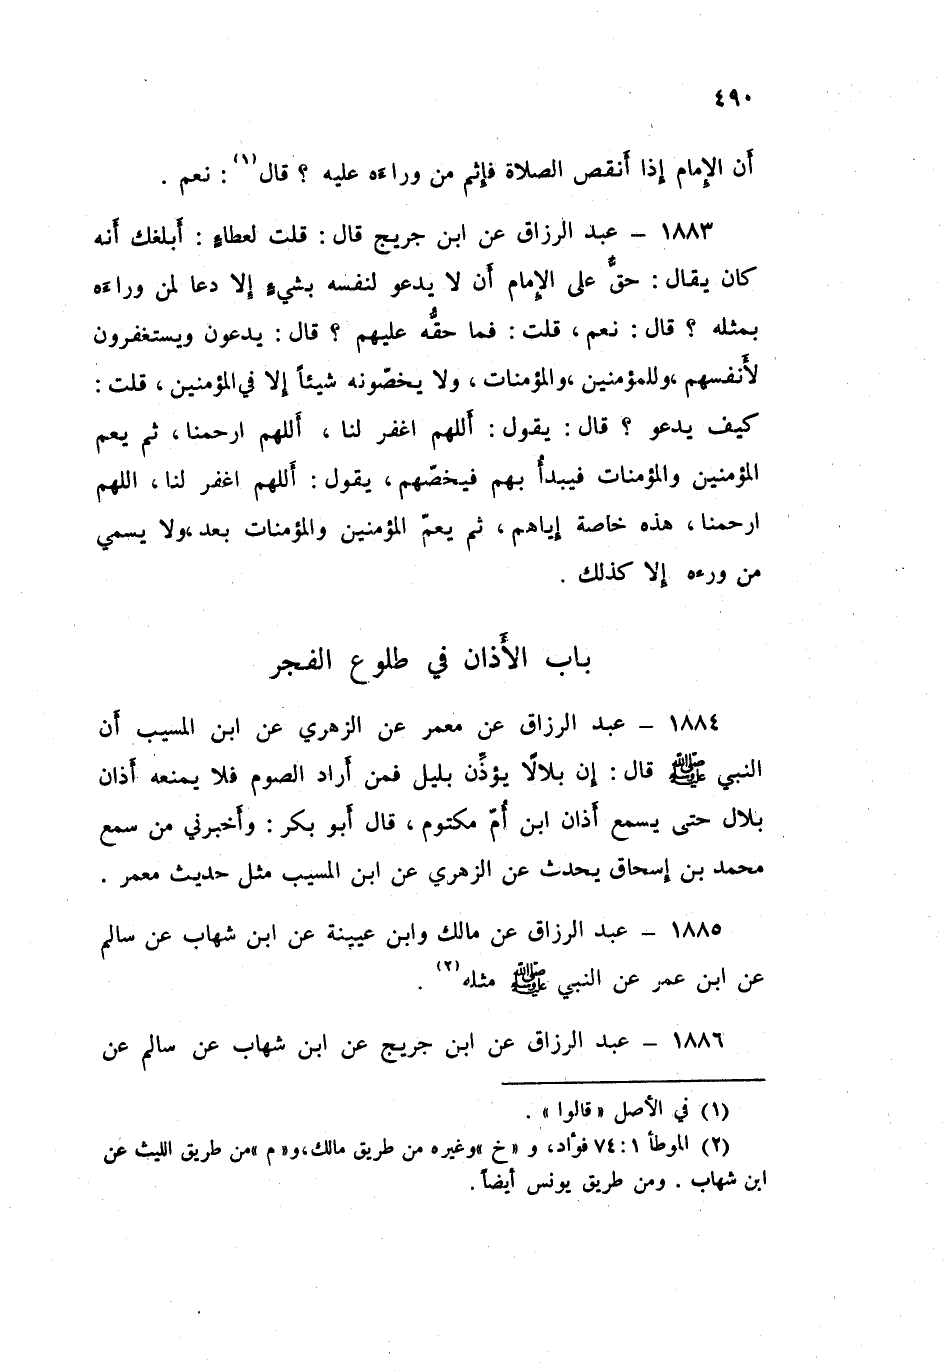 ٤٩٠
أَن الإِمام إِذا أَنقص الصلاة فإِثم من وراءَه عليه ؟ قال(١) : نعم .
١٨٨٣ – عبد الرزاق عن ابن جريج قال : قلت لعطاءٍ : أَبلغك أَنه
كان يقال : حقٌّ على الإِمام أَن لا يدعو لنفسه بشيءٍ إِلا دعا لمن وراءَه
بمثله ؟ قال : نعم ، قلت : فما حقُّه عليهم ؟ قال : يدعون ويستغفرون
لأَنفسهم ،وللمؤمنين ،والمؤمنات ، ولا يخصّونه شيئاً إِلا في المؤمنين ، قلت :
كيف يدعو ؟ قال : يقول : أَللهم اغفر لنا ، أَللهم ارحمنا ، ثم يعم
المؤمنين والمؤمنات فيبدأُ بهم فيخصّهم ، يقول : أَللهم اغفر لنا ، اللهم
ارحمنا ، هذه خاصة إِياهم ، ثم يعمّ المؤمنين والمؤمنات بعد ،ولا يسمي
من ورءه إِلا كذلك .
باب الأَذان في طلوع الفجر
١٨٨٤ – عبد الرزاق عن معمر عن الزهري عن ابن المسيب أَن
النبي ﷺ قال : إِن بلالًا يؤذِّن بليل فمن أَراد الصوم فلا يمنعه أَذان
بلال حتى يسمع أَذان ابن أُمّ مكتوم ، قال أَبو بكر : وأَخبرني من سمع
محمد بن إِسحاق يحدث عن الزهري عن ابن المسيب مثل حديث معمر .
١٨٨٥ – عبد الرزاق عن مالك وابن عيينة عن ابن شهاب عن سالم
عن ابن عمر عن النبي ﷺ مثله(٢) .
١٨٨٦ – عبد الرزاق عن ابن جريج عن ابن شهاب عن سالم عن
(١) في الأصل «قالوا» .
(٢) الموطأ ١ : ٧٤ فؤاد، و «خ »وغيره من طريق مالك،و« م »من طريق الليث عن
ابن شهاب . ومن طريق يونس أيضاً .